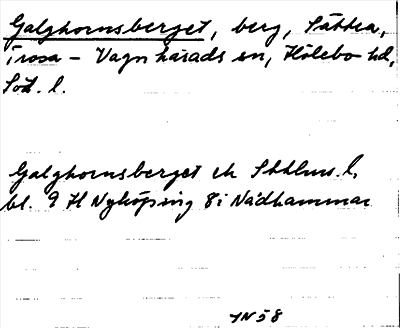 Galghornsberget, berg, Sättra,
Trosa - Vagnhärads sn, Hölebo hd,
Söd. l.
Galghornsberget ek Sthlms. l.
bl. 9 H Nyköping 8i Nådhammar
JN 58